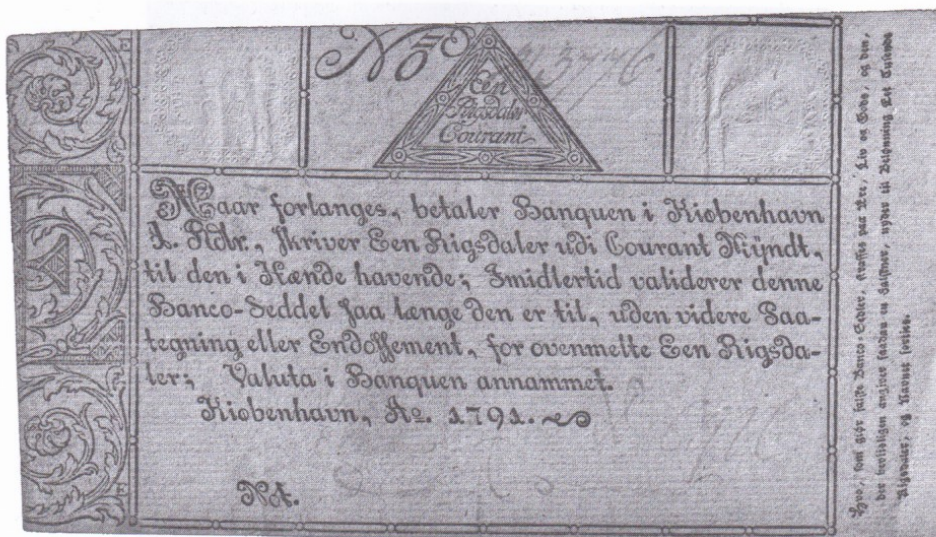 No
Een
Rigsdaler
Courant
Naar forlanges, betaler Banquen i Kiøbenhavn
1. Rdlr., skriver Een Rigsdaler udi Courant Mÿndt,
til den i Hænde havende; Imidlertid validerer denne
Banco-Seddel saa længe den er til, uden videre Paa-
tegning eller Endossement, for ovenmelte Een Rigsda-
ler; Valuta i Banquen annammet.
Kiøbenhavn, Ao. 1791.
Not.
Hvo, som giør falske Banco-Sedler, straffes paa Ære, Liv og Gods, og den,
der troeligen angiver saadan en Falskner, nyder til Belønning Eet Tusinde
Rigsdaler, og Navnet forties.